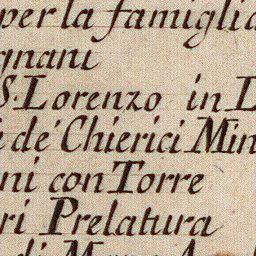 per la famiglia
gnani
S. Lorenzo in L
e de' Chierici Min
ni con Torre
ri Prelatura
di